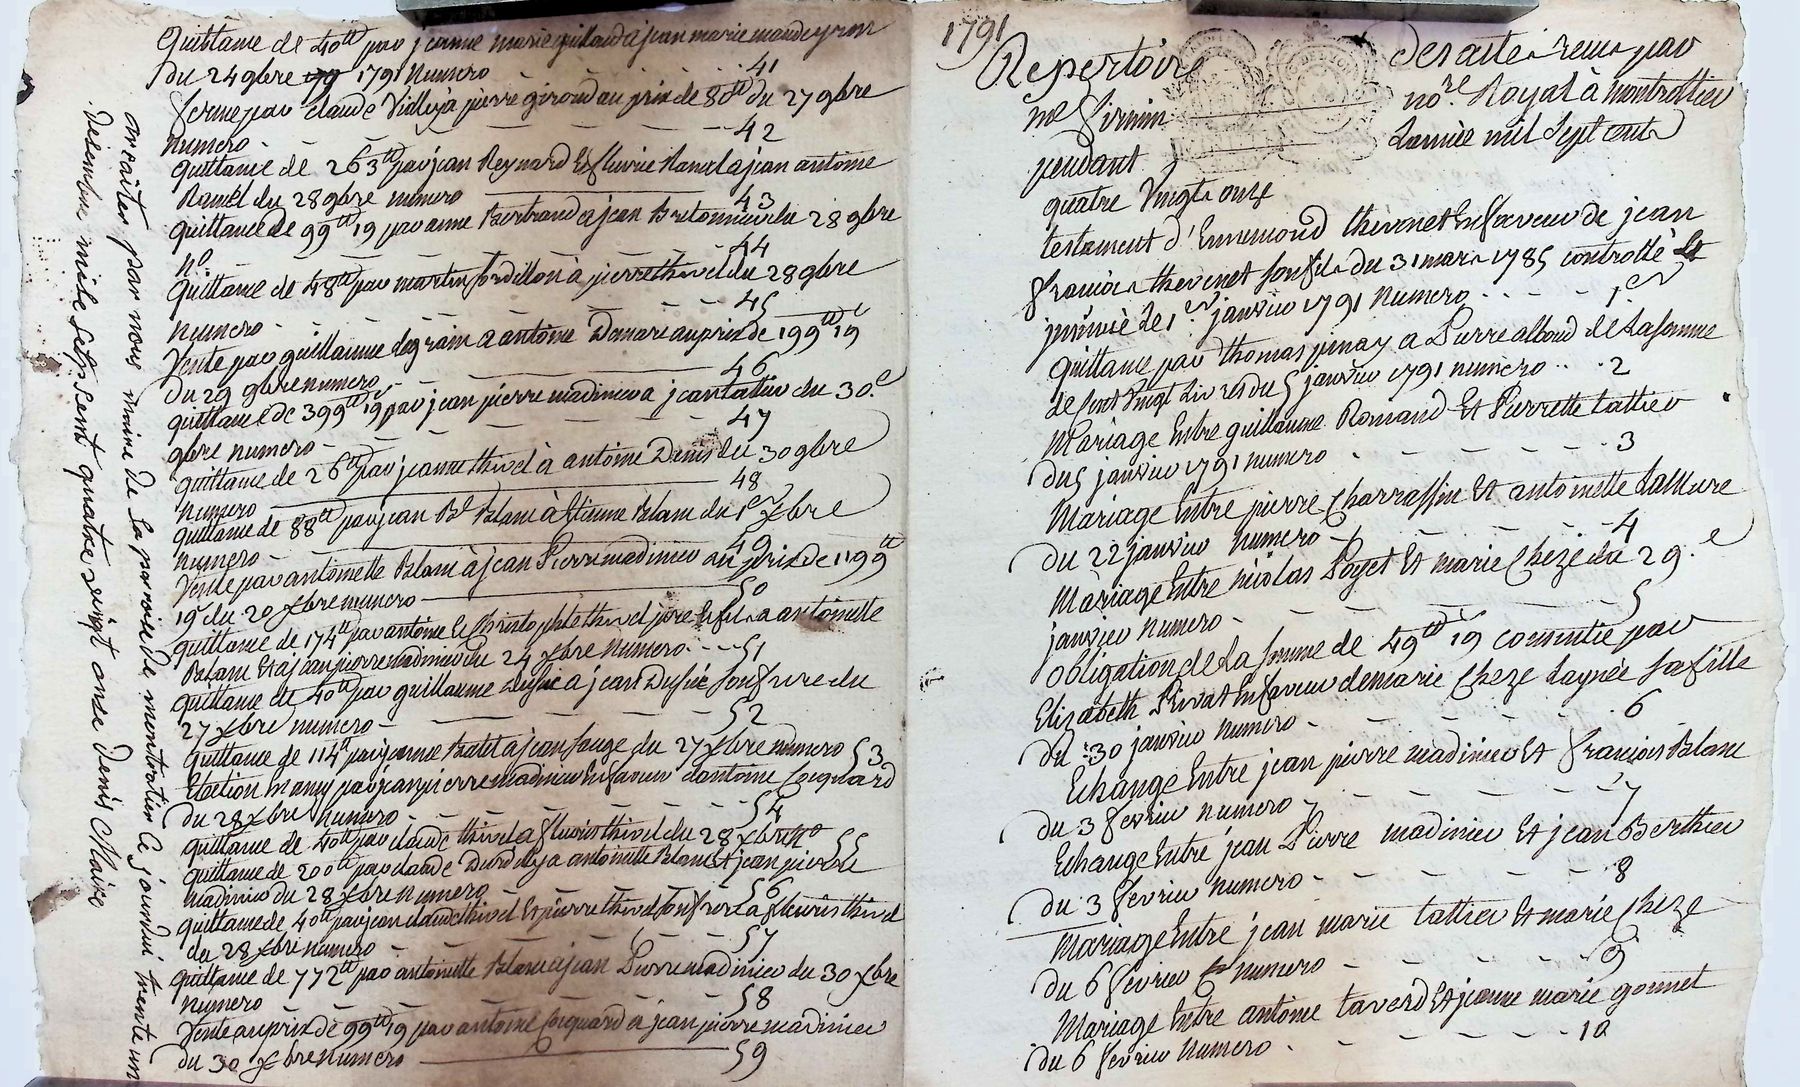 quittance de 40tt par jeanne marie a jean marie
du 24 9bre 1791 Numero - - 41
ferme par claude a pierre giroud au prix de 80tt du 27 9bre
numero - - - - 42
quittance de 263tt par jean Reynard Et fleurie Ramel a jean antoine
Ramel du 28 9bre numero 43
quittance de 99tt 19 par anne Bertrand a jean du 28 9bre
n° - - - - 44
quittance de 48tt par martin à pierre thivel du 28 9bre
numero - - - - 45
Vente par guillaume degrain a antoine au prix de 199tt 19s
du 29 9bre numero 46
quittance de 399tt 19s par jean pierre madinier a jean tatier du 30.e
9bre numero - - - - 47
quittance de 26tt par jeanne thivel à antoine Denis du 30 9bre
numero 48
quittance de 88tt par jean Bte Blanc à Etienne Blanc du 1er Xbre
numero - 49
Vente par antoinette Blanc à jean Pierre madinier au prix de 199tt
19s du 20 Xbre numero 50
quittance de 174tt par antoine Et Christophle thivel pere Et fils a antoinette
Blanc Et a jean pierre madinier du 24 Xbre Numero - - - 51
quittance de 40tt par guillaume a jean son frere du
27 Xbre numero - - - - 52
quittance de 114tt par jeanne a jean du 27 Xbre numero 53
Election par jean pierre madinier En faveur d'antoine Coquard
du 28 Xbre Numero - - - 54
quittance de 40tt par claude thivel a fleurie thivel du 28 Xbre N° 55
quittance de 200tt par claude a antoinette Blanc Et jean pierre
madinier du 28 Xbre numero - - - 56
quittance de 40tt par jean claude thivel Et pierre thivel son frere a fleurie thivel
du 28 Xbre numero - - - - 57
quittance de 772tt par antoinette Blanc a jean Pierre madinier du 30 Xbre
numero - - - - 58
Vente au prix de 99tt 19 par antoine Coquard a jean pierre madinier
du 30 Xbre numero 59
arretter par nous maire de la paroisse de montrotier le jourdui trente un
desembre mille Sept Sent quatre vingt onse Denis Maire
1791
Repertoire des actes reçus par
me firmin no.re Royal à montrottier
pendant L'année mil Sept cent
quatre Vingt onze
testament d'Ennemond thevenet En faveur de jean
francois thevenet son fils du 31 mars 1785 controllé
le 1er janvier 1791 Numero - - - - 1er
quittance par thomas pinay a Pierre de la somme
de Cent Vingt Livres du 5 janvier 1791 numero - - 2
Mariage Entre guillaume Romand Et Pierrette tattier
du 5 janvier 1791 numero - - - - 3
Mariage Entre pierre Charrassin Et antoinette Lallure
du 22 janvier numero - - - - 4
Mariage Entre nicolas Payet Et marie Cheze du 29.e
janvier numero - - - - 5
obligation de La somme de 49tt 19s consentie par
Elizabeth En faveur de marie Cheze L'aynée sa fille
du 30 janvier numero - - - - 6
Echange Entre jean pierre madinier Et francois Blanc
du 3 fevrier numero - - - - 7
Echange Entre jean Pierre madinier Et jean Berthier
du 3 fevrier numero - - - - 8
Mariage Entre jean marie tattier Et marie Cheze
du 6 fevrier numero - - - - 9
Mariage Entre antoine taverd Et jeanne marie gonnet
du 6 fevrier Numero - - - - 10